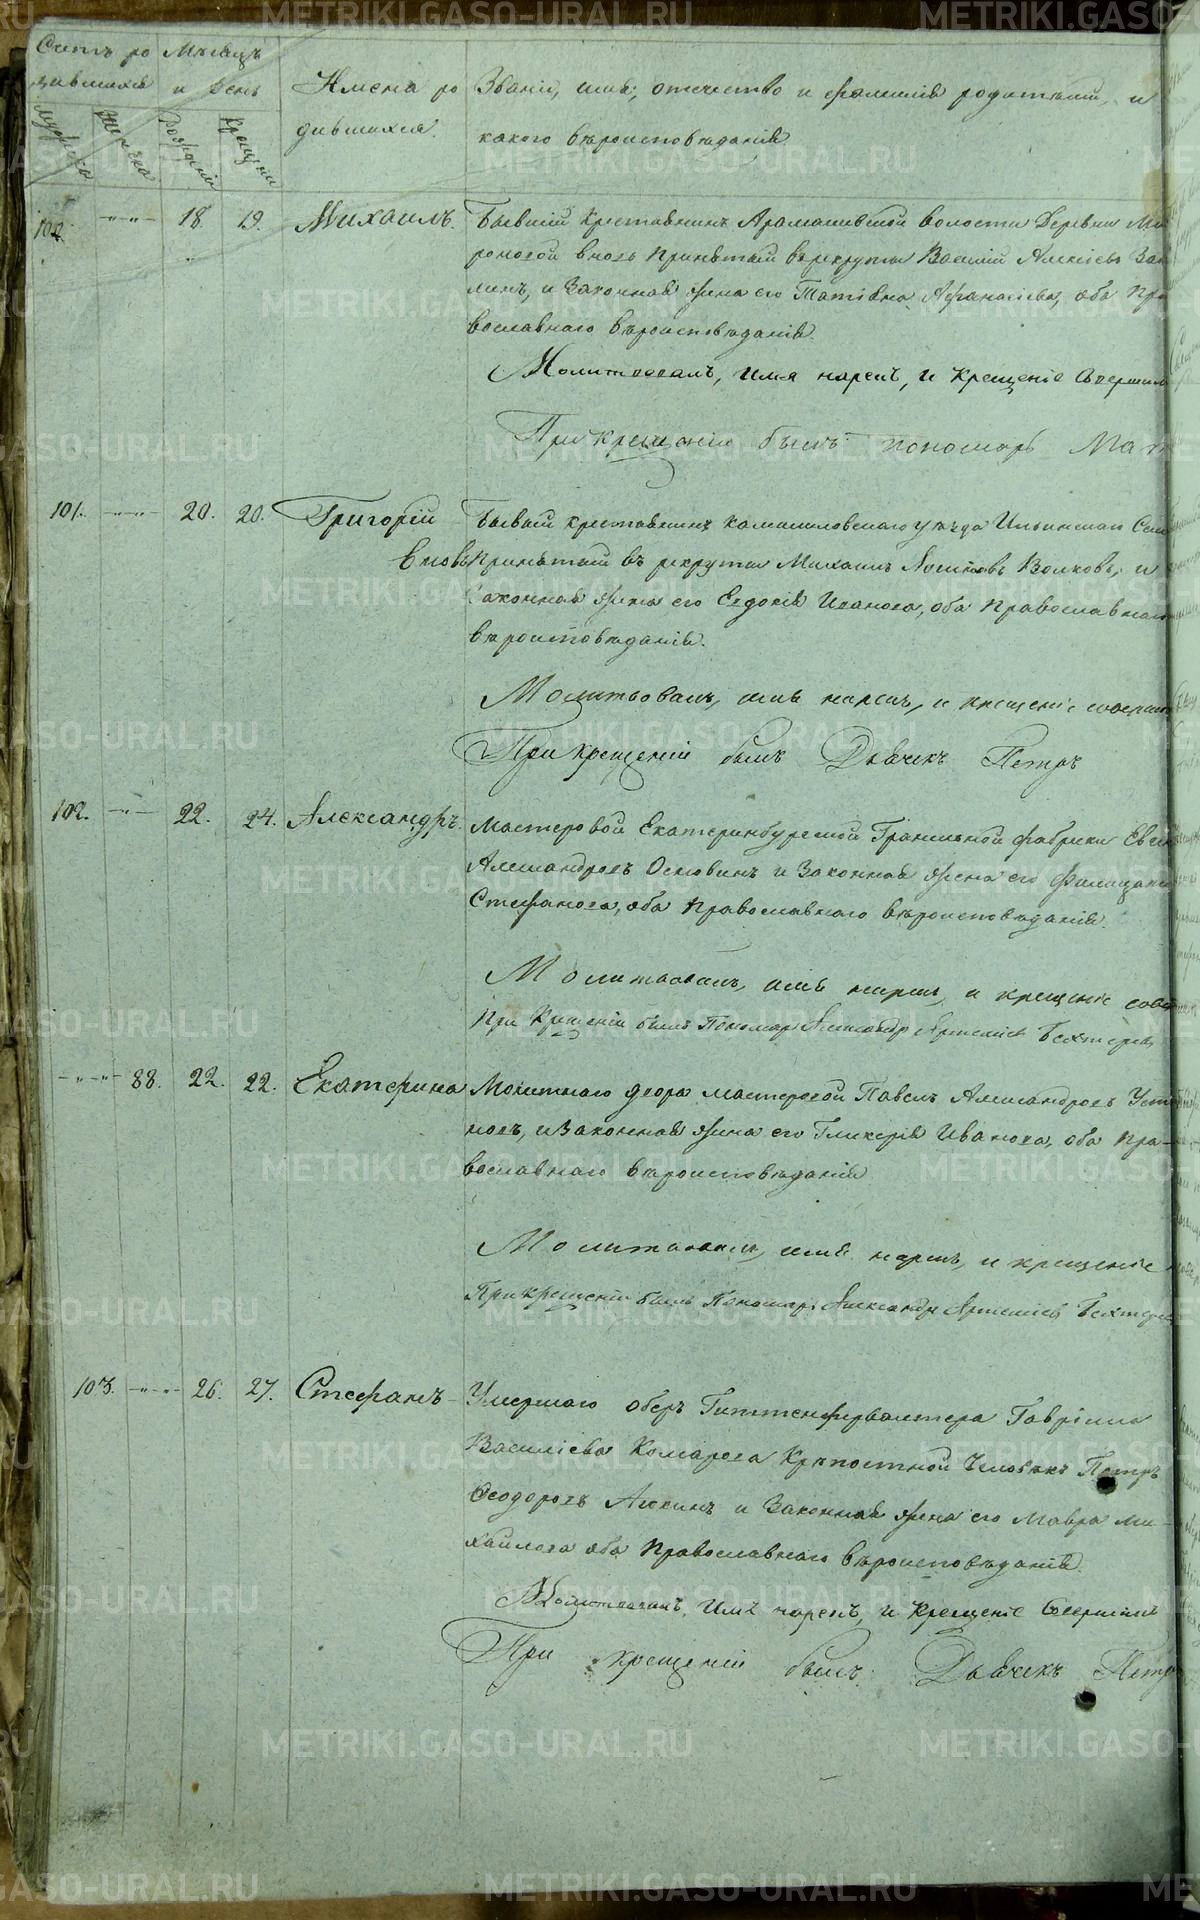 Счетъ ро
дившихся
Мѣсяцъ
и день
Имена ро
дившихся.
Званіе, имя, отчество и фамилія родителей, и
какого вѣроисповѣданія
мужеска
женска
рожденія
крещенія
100. 18. 19. Михаилъ.
Бывшій Крестьянинъ Арамашевской волости Деревни Ми
роновой вновь Принятый въ рекруты Василій Алексіевъ
линъ, и Законная жена его Татіана Афанасіева, оба Пра
вославнаго вѣроисповѣданія.
Молитвовалъ, имя нарекъ, и Крещеніе Совершилъ
При крещеніи былъ пономарь
101. 20. 20. Григорій
Бывшій крестьянинъ Камышловскаго уѣзда
Принятый въ рекруты Михаилъ Волковъ, и
Законная жена его Евдокія Иванова, оба Православнаго
вѣроисповѣданія.
Молитвовалъ, имя нарекъ, и крещеніе
При крещеніи былъ Дьячекъ Петръ
102. 22. 24. Александръ.
Мастеровой Екатеринбургской Гранильной фабрики
Александровъ и Законная жена его
Стефанова, оба Православнаго вѣроисповѣданія.
Молитвовалъ, имя нарекъ, и крещеніе
При Крещеніи былъ Пономарь Александръ Артеміевъ Бехтеревъ
88. 22. 22. Екатерина
Монетнаго двора мастеровой Павелъ Александровъ
новъ, и Законная жена его Гликерія Иванова, оба Пра-
вославнаго вѣроисповѣданія
Молитвовалъ, имя нарекъ, и крещеніе
При крещеніи былъ Пономарь Александръ Артеміевъ
103. 26. 27. Стефанъ
Умершаго оберъ Гиттенфервалтера Гавріила
Василіева Комарова Крѣпостной Человѣкъ Петръ
Ѳеодоровъ и Законная жена его Мавра Ми-
хайлова оба Православнаго вѣроисповѣданія.
Молитвовалъ, Имя нарекъ, и Крещеніе Совершилъ
При крещеніи былъ Дьячекъ
METRIKI.GASO-URAL.RU